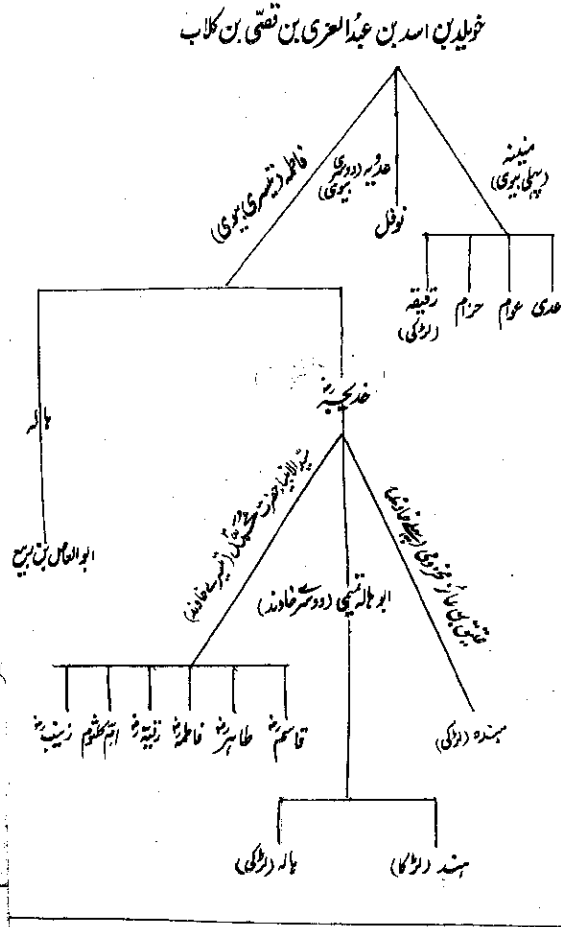 خویلد بن اسد بن عبدالعزی بن قصّی بن کلاب
منینہ
(پہلی بیوی)
عدویہ (دوسری بیوی)
فاطمہ (تیسری بیوی)
نوفل
عدی
عوام
حزام
رقیقہ
(لڑکی)
خدیجہؓ
ہالہ
ابوالعاص بن ربیع
عتیق بن عائذ مخزومی (پہلے خاوند)
ابو ہالہ تمیمی (دوسرے خاوند)
سیّد الانبیاء حضرت محمدﷺ (تیسرے خاوند)
ہندہ (لڑکی)
قاسمؓ
طاہرؓ
فاطمہؓ
رقیہؓ
امِ کلثوم
زینبؓ
ہند (لڑکا)
ہالہ (لڑکی)